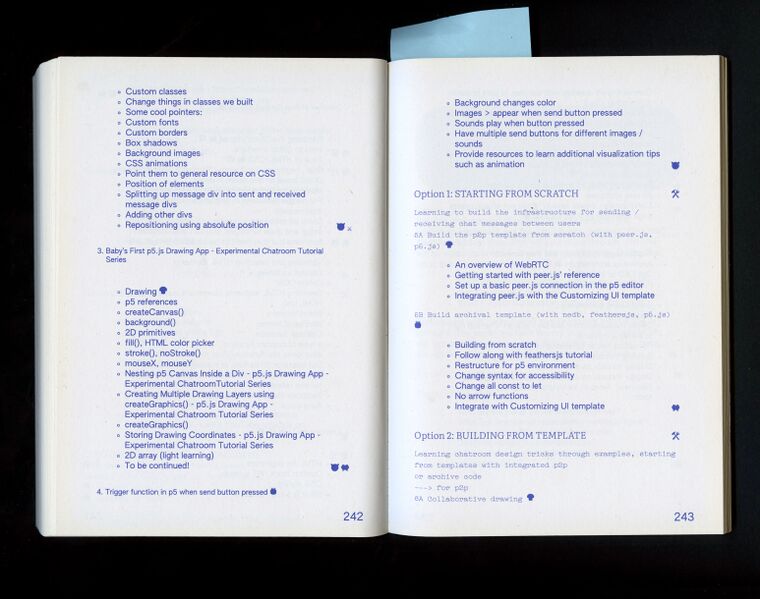 Custom classes
Change things in classes we built
Some cool pointers:
Custom fonts
Custom borders
Box shadows
Background images
CSS animations
Point them to general resource on CSS
Position of elements
Splitting up message div into sent and received
message divs
Adding other divs
Repositioning using absolute position
3. Baby's First p5.js Drawing App - Experimental Chatroom Tutorial
Series
Drawing
p5 references
createCanvas()
background()
2D primitives
fill(), HTML color picker
stroke(), noStroke()
mouseX, mouseY
Nesting p5 Canvas Inside a Div - p5.js Drawing App -
Experimental ChatroomTutorial Series
Creating Multiple Drawing Layers using
createGraphics() - p5.js Drawing App -
Experimental Chatroom Tutorial Series
createGraphics()
Storing Drawing Coordinates - p5.js Drawing App -
Experimental Chatroom Tutorial Series
2D array (light learning)
To be continued!
4. Trigger function in p5 when send button pressed
242
Background changes color
Images > appear when send button pressed
Sounds play when button pressed
Have multiple send buttons for different images /
sounds
Provide resources to learn additional visualization tips
such as animation
Option 1: STARTING FROM SCRATCH
Learning to build the infrastructure for sending /
receiving chat messages between users
5A Build the p2p template from scratch (with peer.js,
p5.js)
An overview of WebRTC
Getting started with peer.js' reference
Set up a basic peer.js connection in the p5 editor
Integrating peer.js with the Customizing UI template
5B Build archival template (with nedb, feathersjs, p5.js)
Building from scratch
Follow along with feathersjs tutorial
Restructure for p5 environment
Change syntax for accessibility
Change all const to let
No arrow functions
Integrate with Customizing UI template
Option 2: BUILDING FROM TEMPLATE
Learning chatroom design tricks through examples, starting
from templates with integrated p2p
or archive code
---> for p2p
6A Collaborative drawing
243